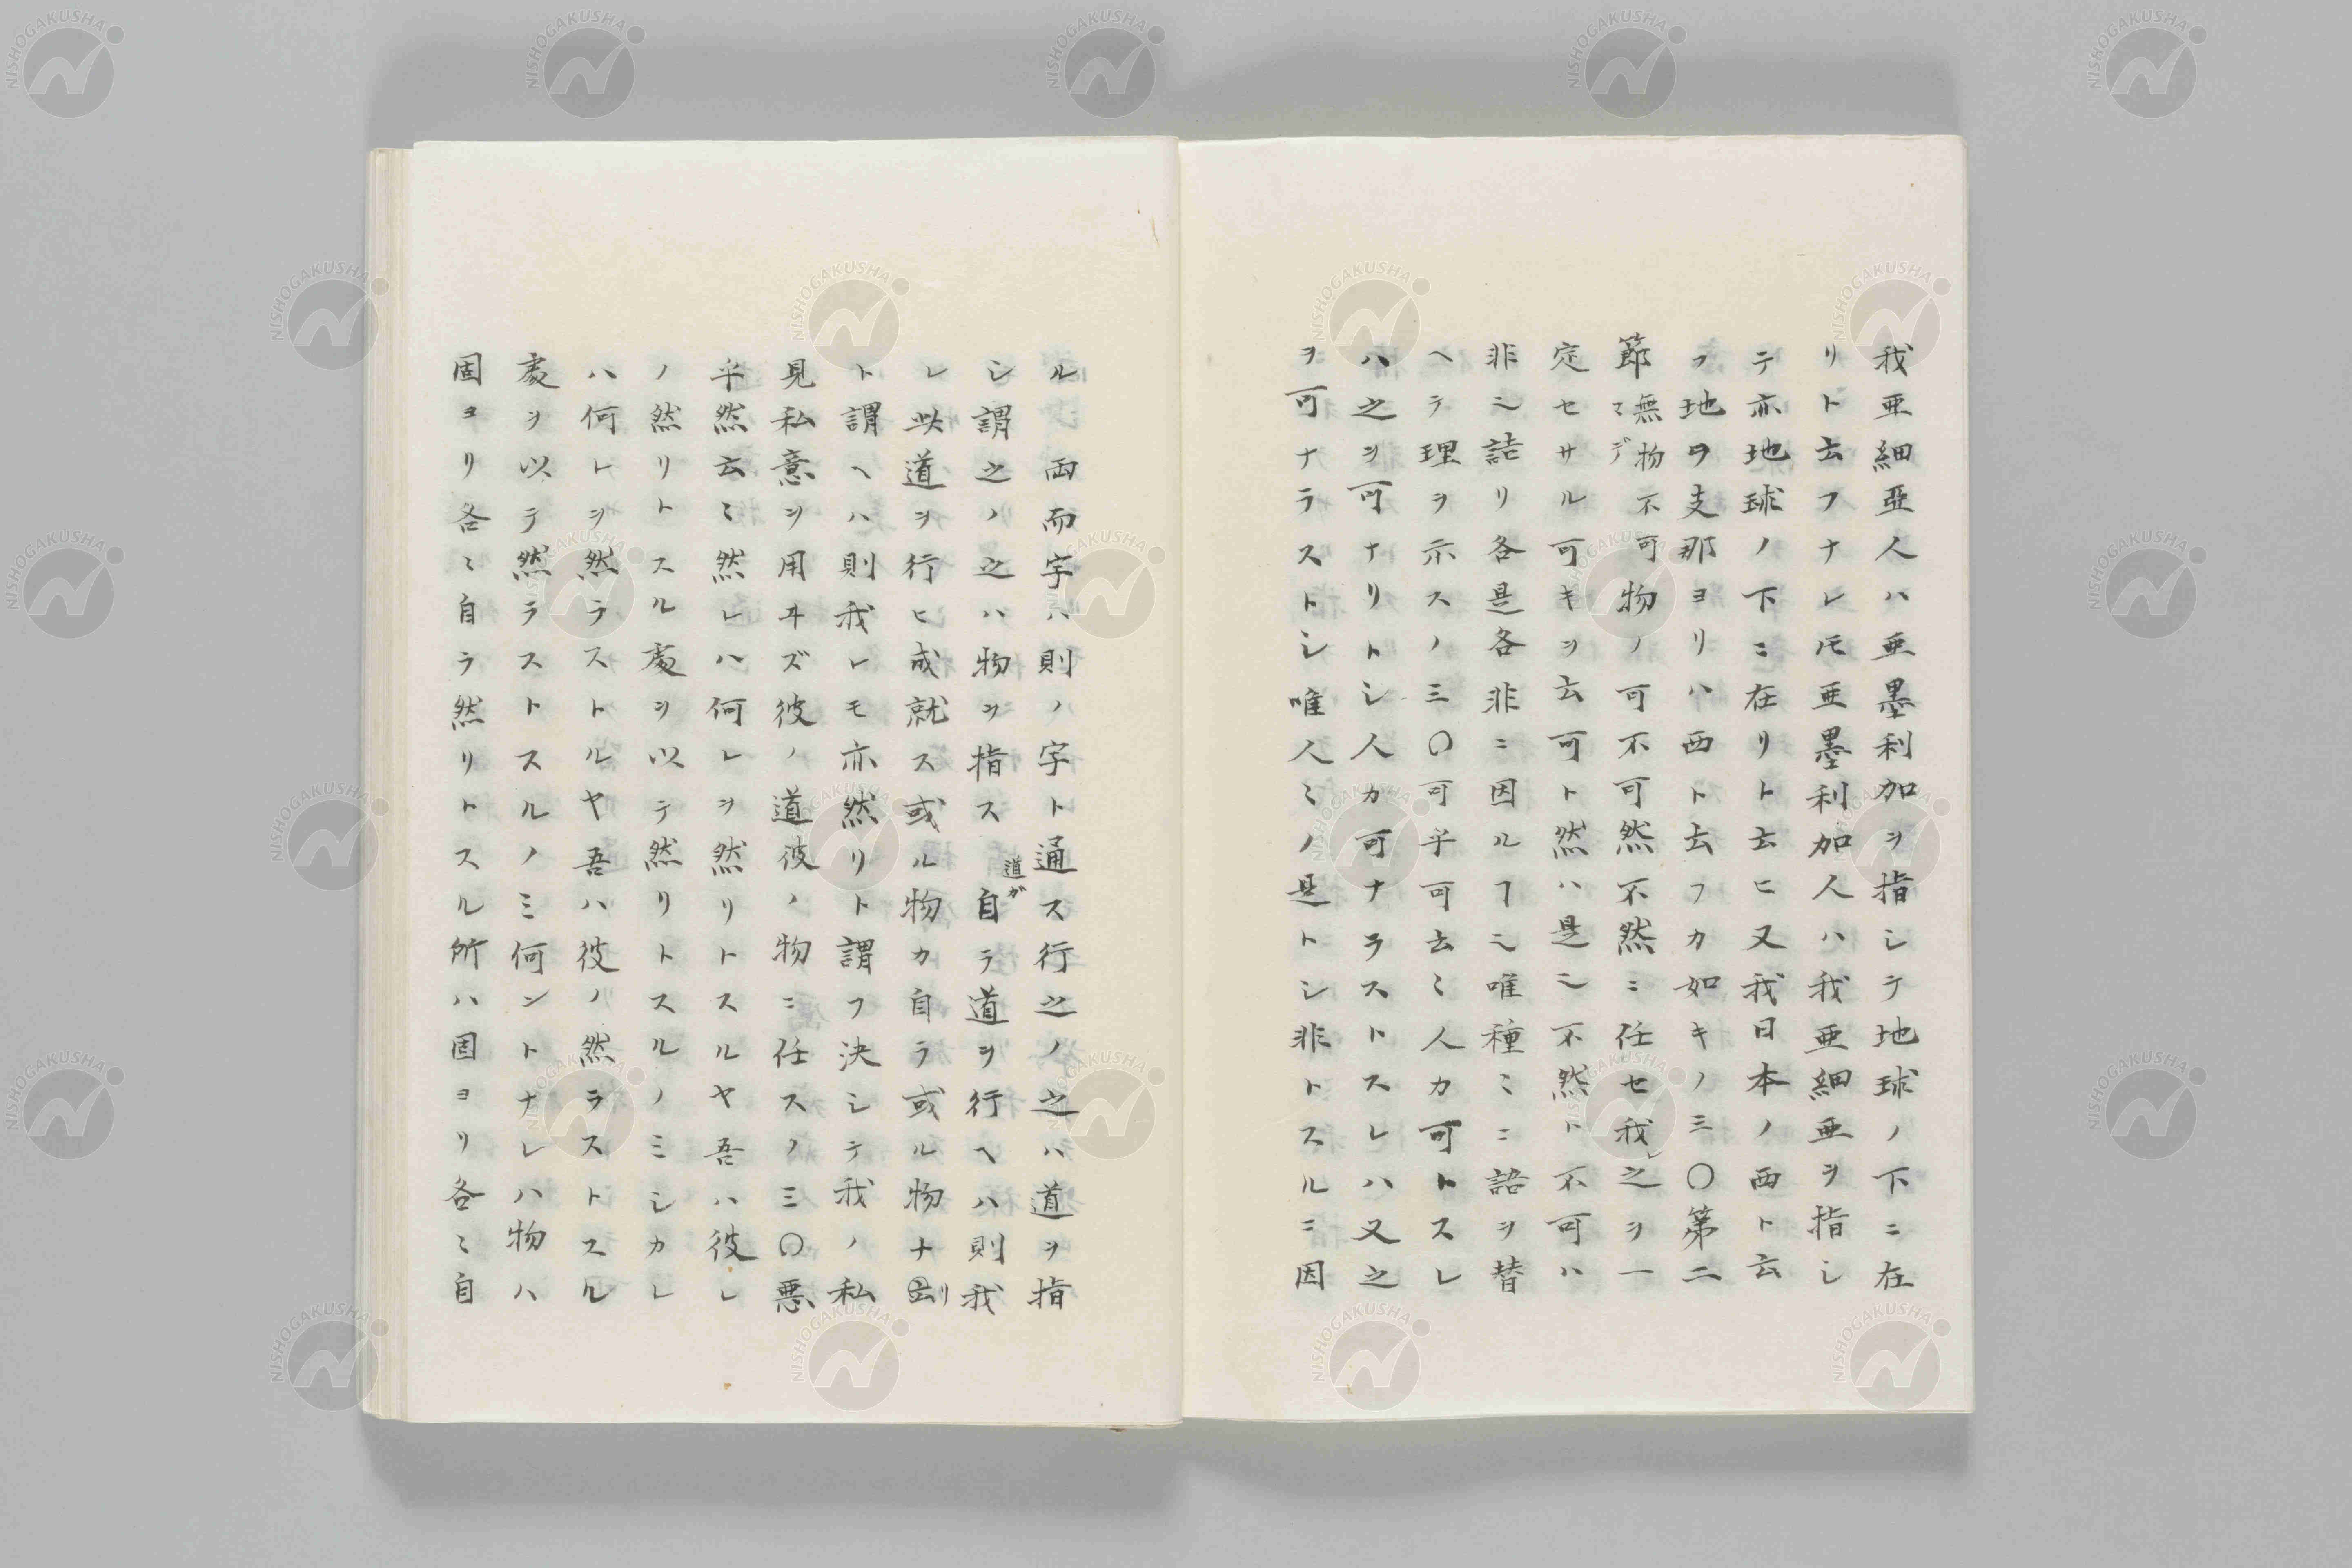 我亜細亞人ハ亜墨利加ヲ指シテ地球ノ下ニ在
リト云フナレ𪜈亜墨利加人ハ我亜細亜ヲ指シ
テ亦地球ノ下ニ在リト云ヒ又我日本ノ西ト云
フ地ヲ支那ヨリハ西ト云フカ如キノミ〇第二
節無物不可マデ物ノ可不可然不然ニ任セ我レ之ヲ一
定セサル可キヲ云可ト然ハ是ニ不然ト不可ハ
非ニ詰リ各是各非ニ因ルヿニ唯種〻ニ語ヲ替
ヘテ理ヲ示スノミ〇可乎可云〻人カ可トスレ
ハ之ヲ可ナリトシ人カ可ナラストスレハ又之
ヲ可ナラストシ唯人〻ノ是トシ非トスルニ因
ル而而字ハ則ノ字ト通ス行之ノ之ハ道ヲ指
シ謂之ノ之ハ物ヲ指ス道が自ラ道ヲ行ヘハ則我
レ此道ヲ行ヒ成就ス或ル物カ自ラ或ル物ナリ
ト謂ヘハ則我レモ亦然リト謂フ決シテ我ノ私
見私意ヲ用ヰズ彼ノ道彼ノ物ニ任スノミ〇悪
乎然云〻然レハ何レヲ然リトスルヤ吾ハ彼レ
ノ然リトスル處ヲ以テ然リトスルノミシカレ
ハ何レヲ然ラストルヤ吾ハ彼ノ然ラストスル
處ヲ以テ然ラストスルノミ何ントナレハ物ハ
固ヨリ各〻自ラ然リトスル所ハ固ヨリ各〻自
NISHOGAKUSHA